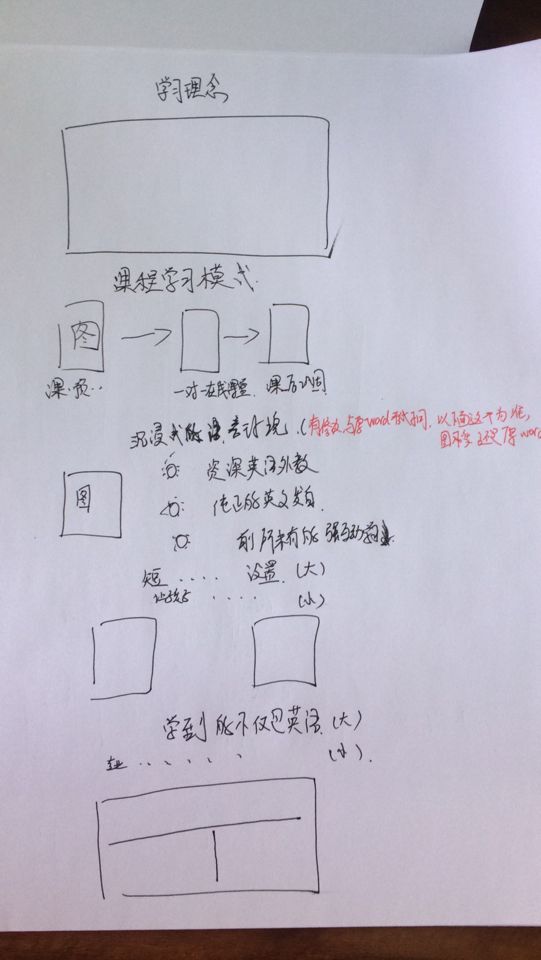 学习理念
课程学习模式
图
课·预··
一对一在线课堂 课后巩固
沉浸式的语言环境 (有修改,与原word不同,以画这个为准,
图不变还是原word
图
资深英语外教
纯正的英文发音
前所未有的强互动
短 .... 设置 (大)
.... (小)
学到的不仅是英语 (大)
...... (小)